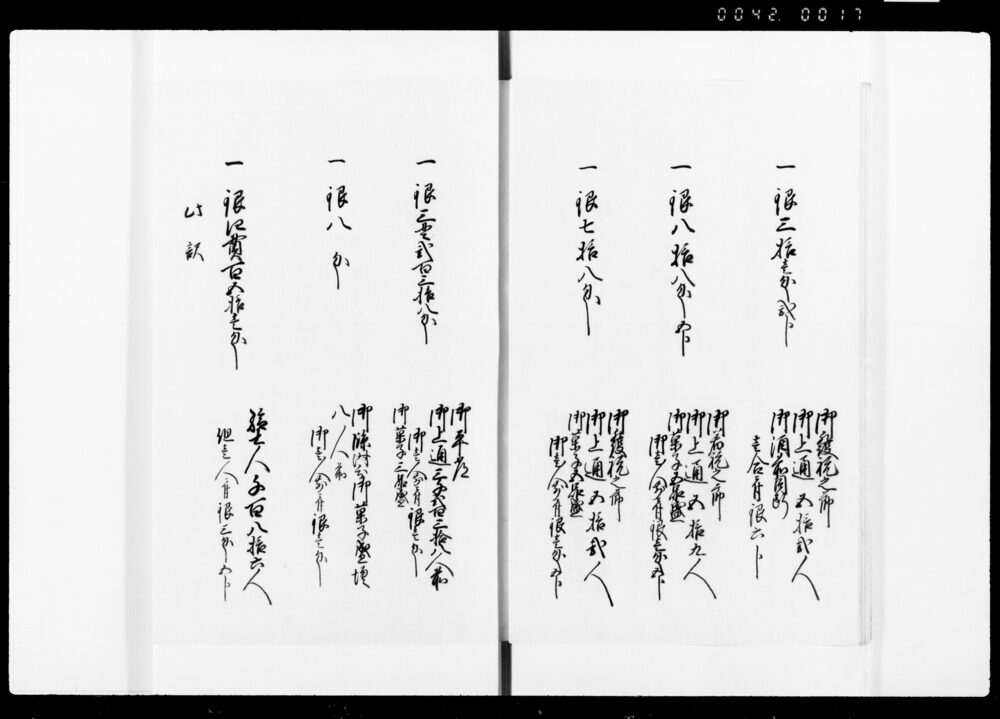 0042.0017
一 銀三拾壱匁弐分
祝之節
御上通五拾弐人
壱合ニ付銀六分
一 銀八拾八匁五分
祝之節
御上通五拾九人
御菓子五品盛
御壱人前ニ付銀壱匁五分
一 銀七拾八匁
祝之節
御上通五拾弐人
御菓子五品盛
御壱人前ニ付銀壱匁五分
一 銀三貫弐百三拾八匁
御平常
御上通三千弐百三拾八人前
御菓子三品盛
御壱人前ニ付銀壱匁
一 銀八匁
御菓子盛増
八人前
御壱人前ニ付銀壱匁
一 銀四貫百五拾壱匁
人千百八拾六人
但壱人ニ付銀三匁五分
此訳